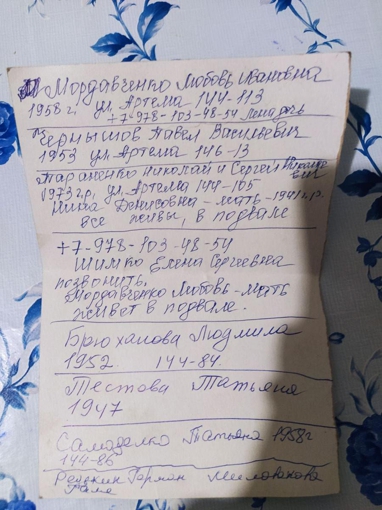 Мордавченко Любовь Ивановна
1958 г, ул. Артема 144-113
+7-978-103-48-54
Чернышов Павел Васильевич
1953 ул. Артема 146-13
Тараненко Николай и Сергей
1973 г.р, ул. Артема 144-105
Нина Денисовна - мать - 1941 г.р.
все живы, в подвале
+7-978-103-48-54
Шимко Елена Сергеевна
позвонить,
Мордавченко Любовь - мать
живет в подвале.
Брюханова Людмила
1952. 144-84
Тестова Татьяна
1947
Самоделко Татьяна 1958г
144-86
Герман